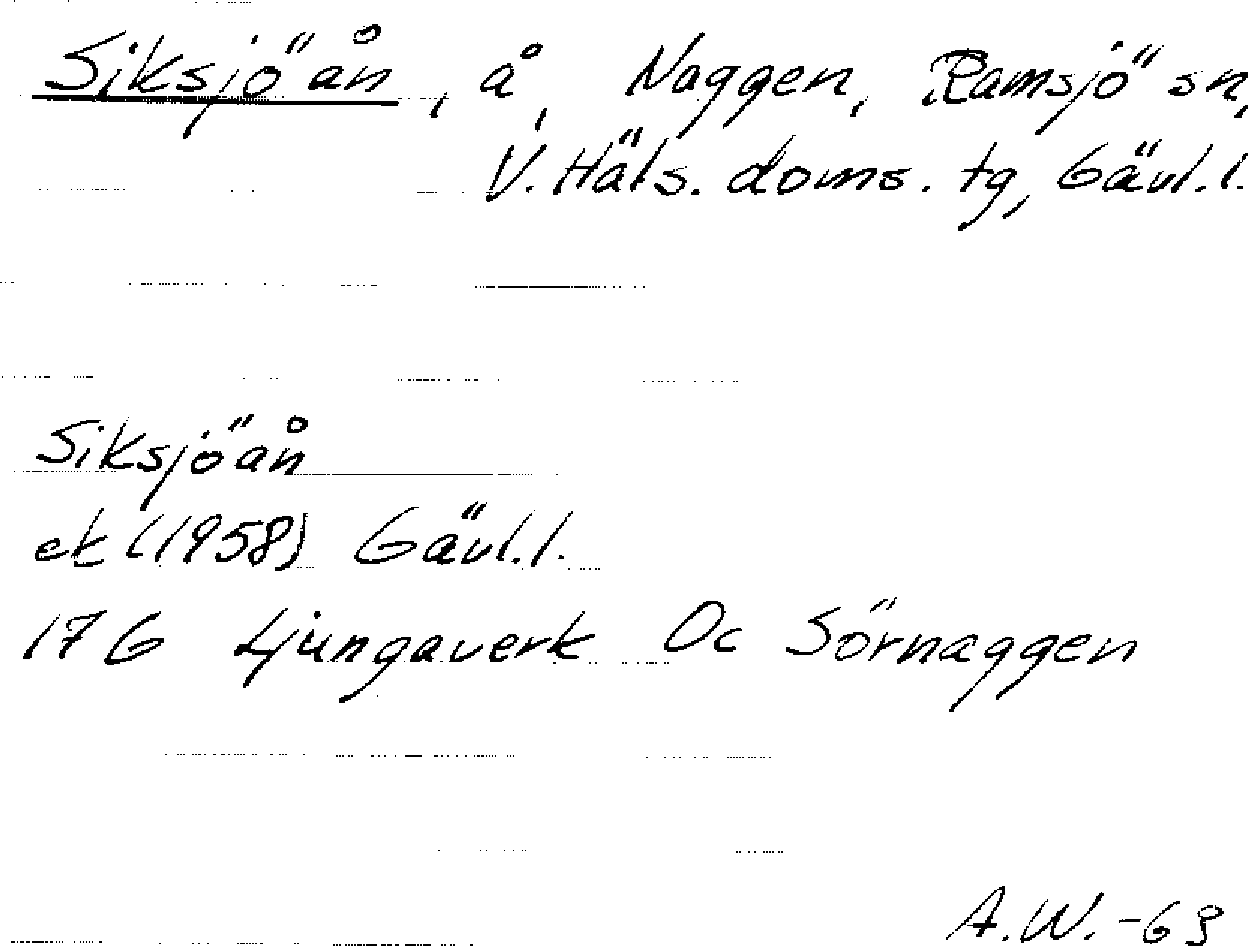 Siksjöån, å, Naggen, Ramsjö sn,
V. Häls. doms. tg, Gävl.l.
Siksjöån
ek (1958) Gävl.l.
17G Ljungaverk Oc Sörnaggen
A.W.-63